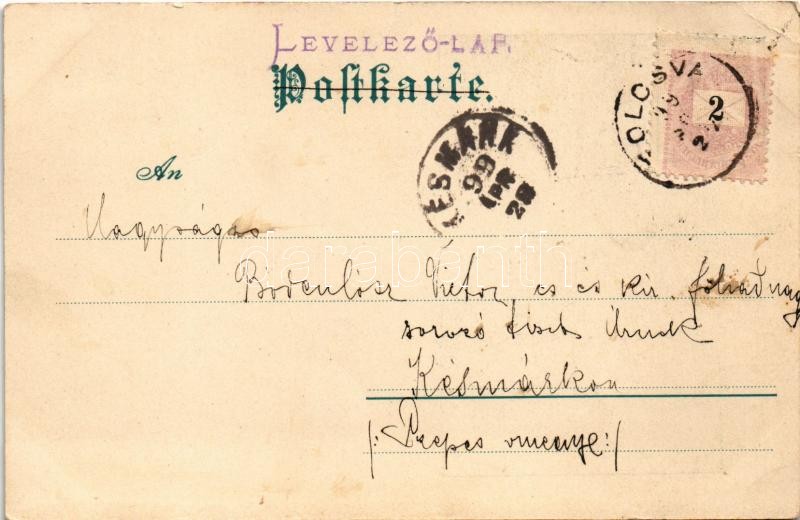 LEVELEZŐ-LAP.
Postkarte.
KOLCSVA
99
2
KESMARK
99
APR
28
An
Nagyságos
Viktor, cs és kir. főhadnagy
sorozó tiszt Úrnak
Késmárkon
/: Szepes vmegye :/
darabanth